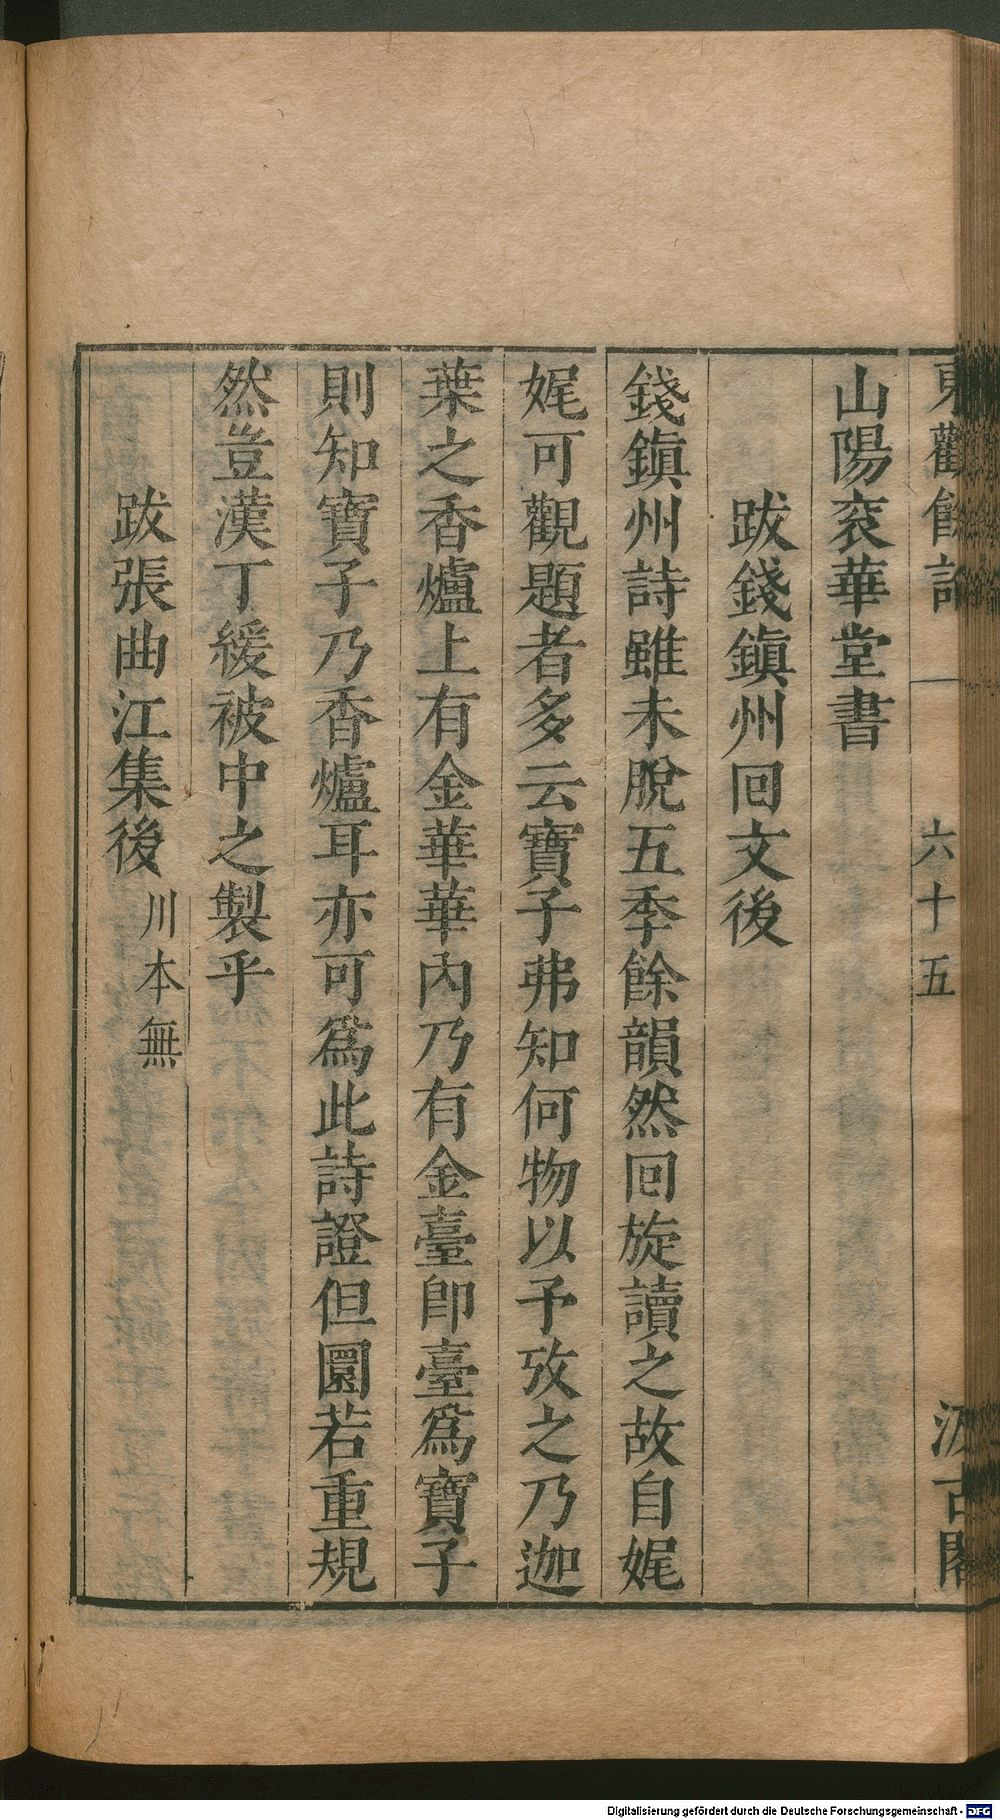 東觀餘論
六十五
汲古閣
山陽衮華堂書
跋錢鎮州回文後
錢鎮州詩雖未脫五季餘韻然回旋讀之故自娓
娓可觀題者多云寶子弗知何物以予攷之乃迦
葉之香爐上有金華華內乃有金臺即臺為寶子
則知寶子乃香爐耳亦可為此詩證但圜若重規
然豈漢丁緩被中之製乎
跋張曲江集後 川本無
Digitalisierung gefördert durch die Deutsche Forschungsgemeinschaft - DFG